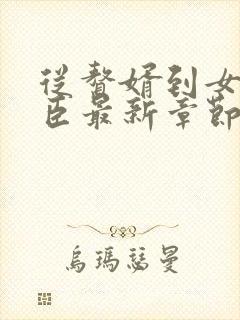 從贅婿到女
臣最新章節
烏瑪瑟曼